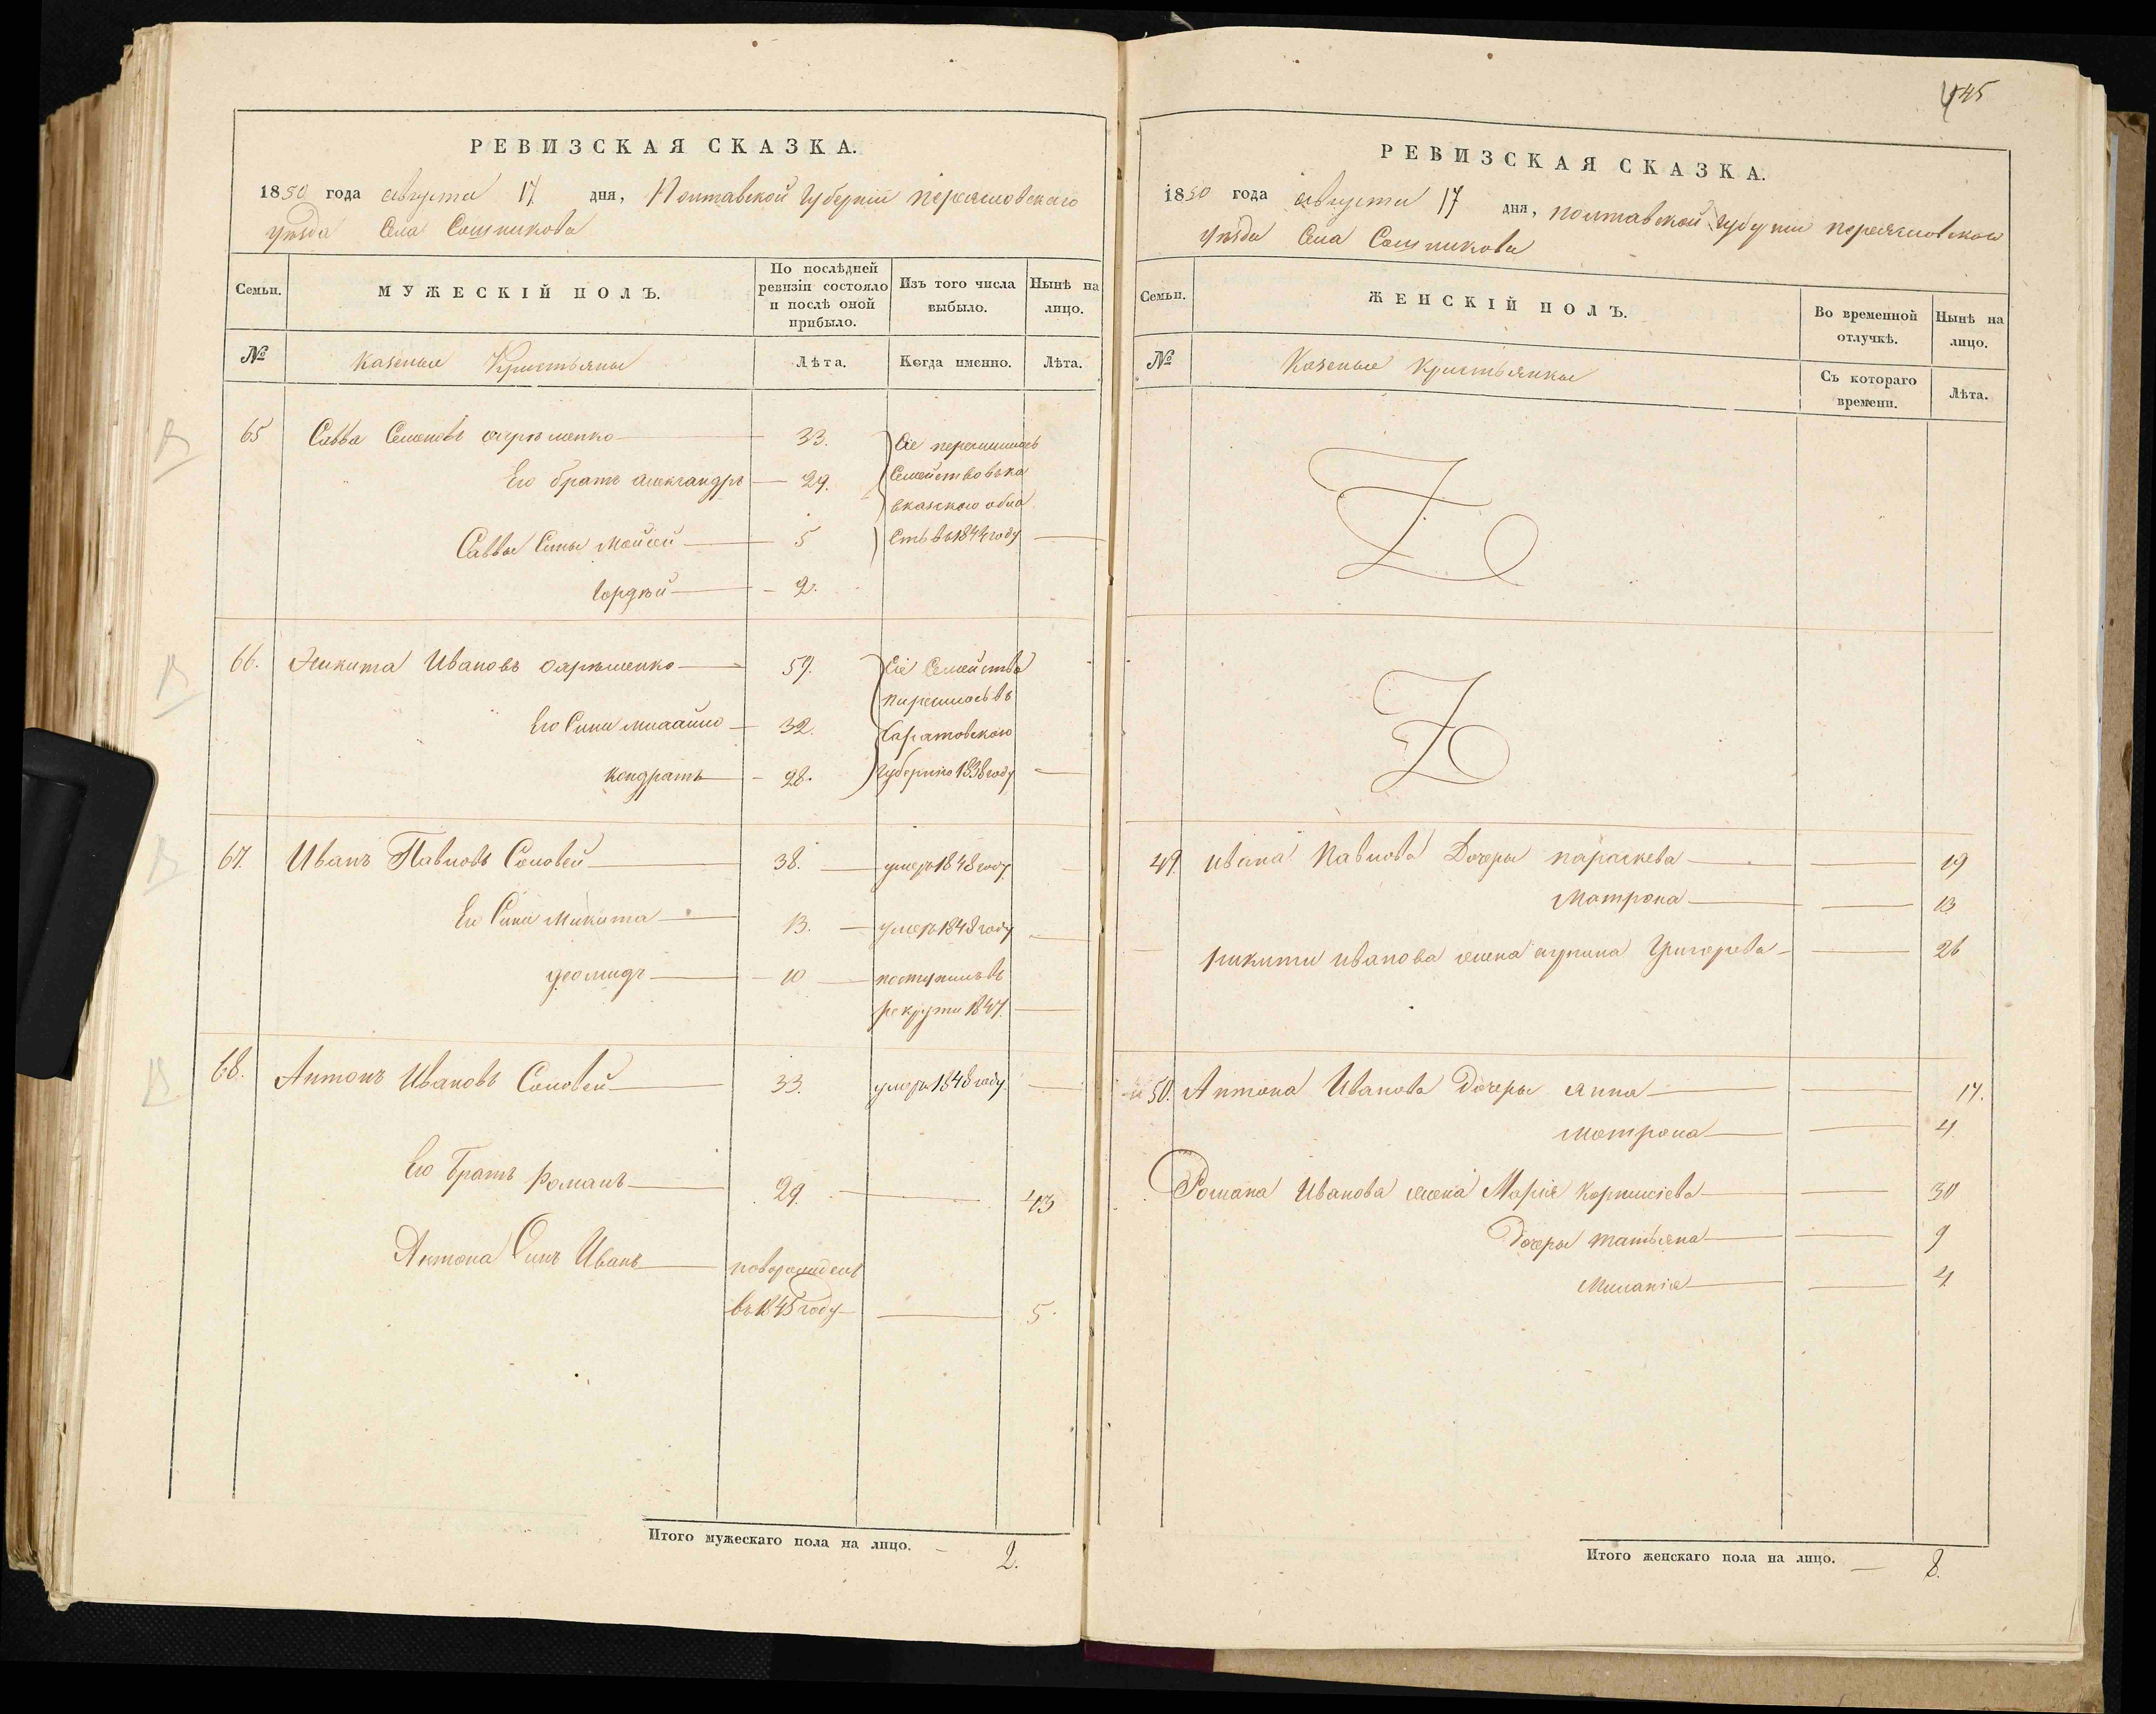 445
РЕВИЗСКАЯ СКАЗКА.
1850 года августа 17 дня, Полтавской Губернии переяславскаго
уезда Села Сошникова
Семьи.
МУЖЕСКІЙ ПОЛЪ.
По послѣдней ревизіи состояло и послѣ оной прибыло.
Изъ того числа выбыло.
Нынѣ на лицо.
№
Казеные Кристьяны
Лѣта.
Когда именно.
Лѣта.
65 Савва Семеновъ 33. Сіе перечислилось
Его братъ александръ 29. Семейство вка
вказскою обла
Саввы Сины Мойсей 5 сть въ 1844 году
Гордѣй 2.
66. Никита Ивановъ 59. Сіе Семейства
Его Сини 32. Саратовскою
кондратъ 28. Губернію 1838 году
67. Иванъ Павловъ Соловей 38. умеръ 1848 году
Его Сини Микита 13. умеръ 1848 году
10 поступилъ въ
рекрути 1847.
68. Антонъ Ивановъ Соловей 33. умеръ 1848 году.
Его братъ Романъ 29. 43
Антона Синъ Иванъ новорожденъ
въ 1845 году 5.
Итого мужескаго пола на лицо. 2.
РЕВИЗСКАЯ СКАЗКА.
1850 года августа 17 дня, полтавской губерніи переяславской
уезда Села Сошникова
Семьи.
ЖЕНСКІЙ ПОЛЪ.
Во временной отлучкѣ.
Нынѣ на лицо.
№
Казеные кристьянкы
Съ котораго времени.
Лѣта.
49. ивана Павлова Дочеры параскева 19
Матрона 13
никити иванова жена Григорева 26
50. Антона Иванова Дочеры анна 17.
мотрона 4.
Романа Иванова жена Марія 30
Дочеры татьяна 9
Миланія 4
Итого женскаго пола на лицо. 8.